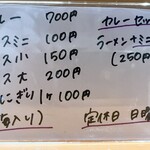 レー 700円
スミニ 100円
ス小 150円
ス大 200円
にぎり1ヶ100円
入り)
カレーセッ
ラーメン+ミニ
(250円
定休日 日曜